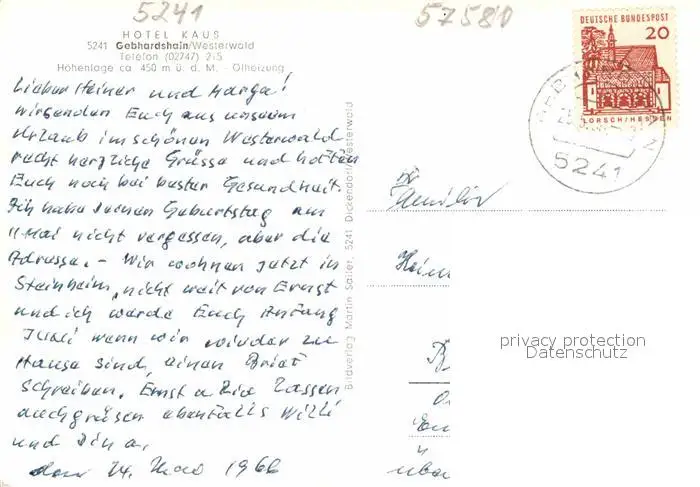 5241
57580
HOTEL KAUS
5241 Gebhardshain/Westerwald
Telefon (02747) 215
Höhenlage ca. 450 m ü. d. M. - Ölheizung
DEUTSCHE BUNDESPOST
20
LORSCH/HESSEN
5241
Lieber Heiner und Marga!
wir senden Euch aus unserm
Urlaub im schönen Westerwald
recht herzliche Grüsse und hoffen
Euch noch bei bester Gesundheit.
Ich habe Deinen Geburtstag am
Mai nicht vergessen, aber die
Adresse. - Wir wohnen jetzt in
Steinheim, nicht weit von Ernst
und ich werde Euch Anfang
Juni wenn wir wieder zu
Hause sind, einen Brief
schreiben. Ernst u. Zia lassen
auch grüßen ebenfalls Willi
und Dina,
den 24. Mai 1966
Bildverlag Martin Sailer, 5241 Dickendorf/Westerwald
Familie
Hein
privacy protection
Datenschutz
über